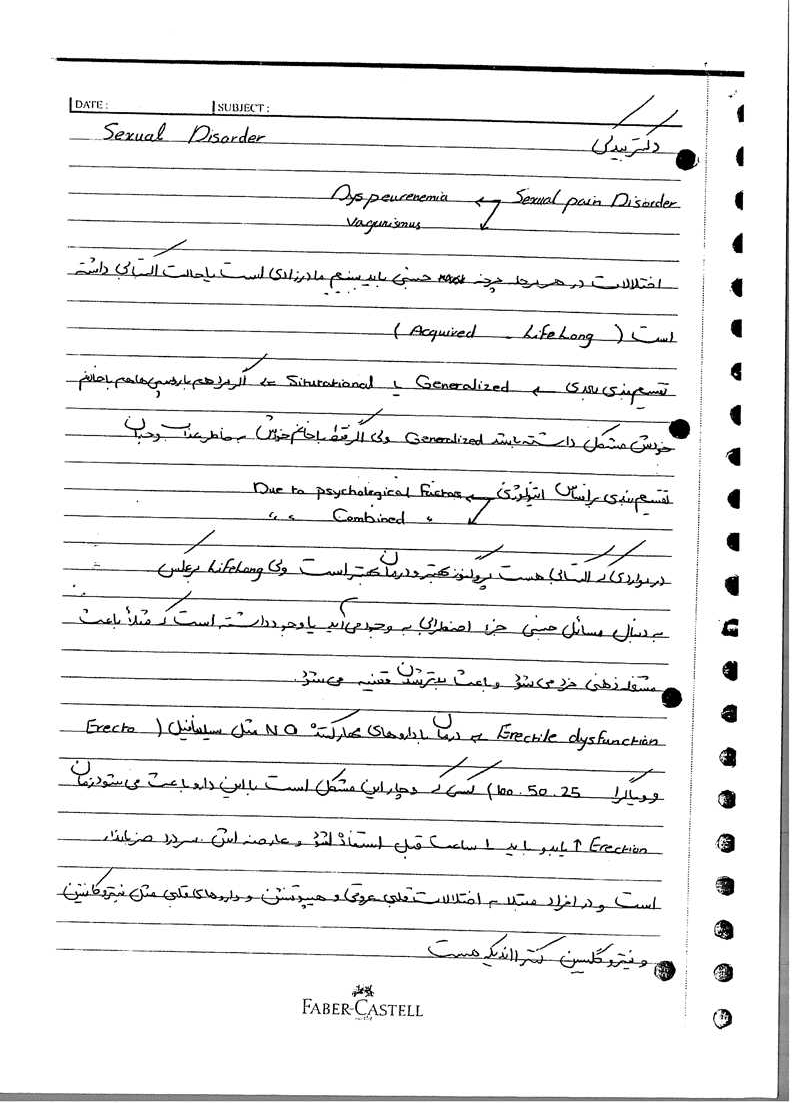 DATE: SUBJECT:
Sexual Disorder دکتر بیدکی
Sexual pain Disorder ← Dyspeurenemia
Vagunismus
اختلالات در هر مرحله چرخه جنسی باید ببینیم مادرزادی است یا حالت اکتسابی داشته
است ( Acquired - LifeLong )
تقسیم بندی بعدی ← Generalized یا Siturational ← اگر فرد هم با روسپی ها هم با خانم
خودش مشکل داشته باشد Generalized ولی اگر فقط با خانم خودش به خاطر عذاب وجدان
تقسیم بندی بر اساس اتیولوژی ← Due to psychological Factors
" " Combined "
در مواردی که اکتسابی هست پروگنوز بهتر و درمان بهتر است ولی LifeLong برعکس
به دنبال مسائل جنسی خرد اضطرابی به وجود می آید یا وجود داشته است که قبلاً باعث
مشغله ذهنی خرد می شود و باعث بدتر شدن قضیه می شود.
Erectile dysfunction ← درمان با داروهای مهار کننده NO مثل سیلدنافیل ( Erecto
و ویاگرا 25 . 50 . 100) کسی که دچار این مشکل است با این دارو باعث می شود زمان
Erection ↑ یابد و باید 1 ساعت قبل استفاده شود و عارضه اش سردرد ضرباندار
است و در افراد مبتلا به اختلالات قلبی عروقی و هیپوتنشن و داروهای قلبی مثل نیتروکانتین
و نیتروگلسیرین کنترااندیکه هست
FABER-CASTELL